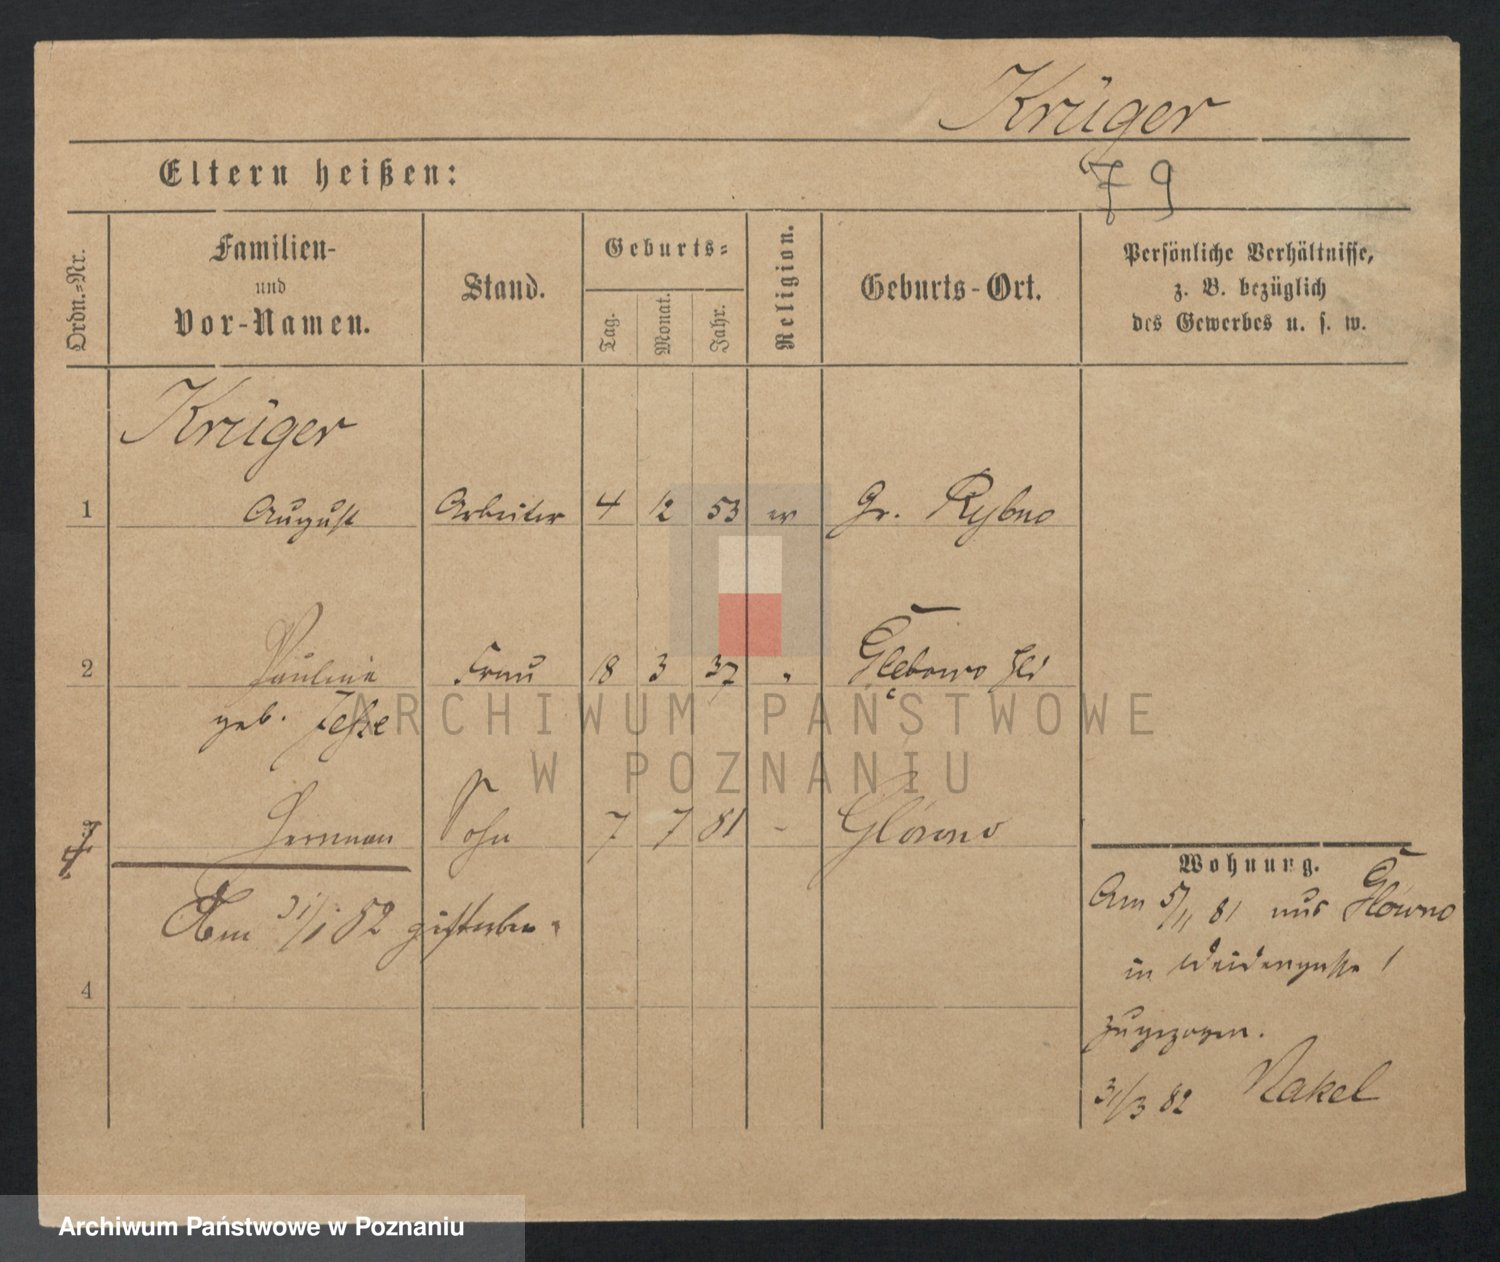 Krüger
Eltern heißen:
79
Ordn.=Nr.
Familien-
und
Vor-Namen.
Stand.
Geburts=
Tag.
Monat.
Jahr.
Religion.
Geburts-Ort.
Persönliche Verhältnisse,
z. B. bezüglich
des Gewerbes u. s. w.
Krüger
1 August Arbeiter 4 12 53 ev Gr. Rybno
2 Pauline Frau 18 3 37 " Glębowo
geb.
Herrman Sohn 7 7 81 - Glówno
Wohnung.
Am 31/1 82 gestorben.
Am 5/11 81 aus Glówno
in Weidengasse 1
zugezogen.
31/3 82 Nakel
4
ARCHIWUM PAŃSTWOWE
W POZNANIU
Archiwum Państwowe w Poznaniu